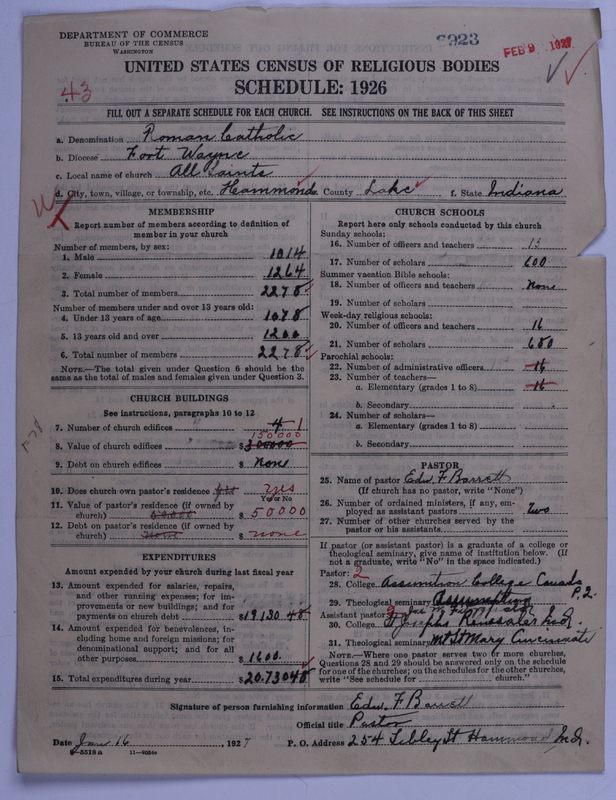 DEPARTMENT OF COMMERCE
BUREAU OF THE CENSUS
WASHINGTON
6923
FEB 9 1927
UNITED STATES CENSUS OF RELIGIOUS BODIES
43
SCHEDULE: 1926
FILL OUT A SEPARATE SCHEDULE FOR EACH CHURCH. SEE INSTRUCTIONS ON THE BACK OF THIS SHEET
a. Denomination Roman Catholic
b. Diocese Fort Wayne
c. Local name of church All Saints
d. City, town, village, or township, etc. Hammond e. County Lake f. State Indiana
MEMBERSHIP
Report number of members according to definition of
member in your church
Number of members, by sex:
1. Male 1014
2. Female 1264
3. Total number of members 2278
Number of members under and over 13 years old:
4. Under 13 years of age 1078
5. 13 years old and over 1200
6. Total number of members 2278
NOTE.—The total given under Question 6 should be
the same as the total of males and females given under Question 3.
CHURCH BUILDINGS
See instructions, paragraphs 10 to 12
7. Number of church edifices 4 1
150000
8. Value of church edifices $ 300000
9. Debt on church edifices $ None
10. Does church own pastor's residence yes yes
Yes or No
11. Value of pastor's residence (if owned by
church) $ 50000
12. Debt on pastor's residence (if owned by
church) none $ none
EXPENDITURES
Amount expended by your church during last fiscal year
13. Amount expended for salaries, repairs,
and other running expenses; for im-
provements or new buildings; and for
payments on church debt $ 19130 48
14. Amount expended for benevolences, in-
cluding home and foreign missions; for
denominational support; and for all
other purposes $ 1600.
15. Total expenditures during year $ 20.73048
CHURCH SCHOOLS
Report here only schools conducted by this church
Sunday schools:
16. Number of officers and teachers 13
17. Number of scholars 600
Summer vacation Bible schools:
18. Number of officers and teachers None
19. Number of scholars
Week-day religious schools:
20. Number of officers and teachers 16
21. Number of scholars 680
Parochial schools:
22. Number of administrative officers 16
23. Number of teachers—
a. Elementary (grades 1 to 8) 16
b. Secondary
24. Number of scholars—
a. Elementary (grades 1 to 8)
b. Secondary
PASTOR
25. Name of pastor Edw. F Barrett
(If church has no pastor, write "None")
26. Number of ordained ministers, if any, em-
ployed as assistant pastors Two
27. Number of other churches served by the
pastor or his assistants
If pastor (or assistant pastor) is a graduate of a college or
theological seminary, give name of institution below. (If
not a graduate, write "No" in the space indicated.)
Pastor: 2
28. College Assumtion College Canada
29. Theological seminary Assumption P.2.
Assistant pastor:
30. College St Josephs Rensselaer Ind.
31. Theological seminary Mt St Mary Cincinnati
NOTE.—Where one pastor serves two or more churches,
Questions 28 and 29 should be answered only on the schedule
for one of the churches; on the schedules for the other churches,
write "See schedule for church."
Signature of person furnishing information Edw. F Barrett
Official title Pastor
Date Jan 16, 1927 P. O. Address 254 Sibley St Hammond Ind.
5518a 11—9054a